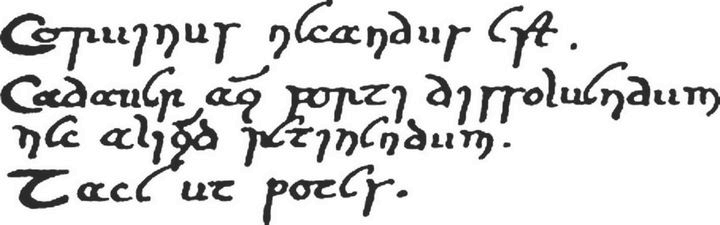 Coruinus necandus est.
Cadauer aq̄ forti dissoluendum
nec aliq̄d retinendum.
Tace ut potes.